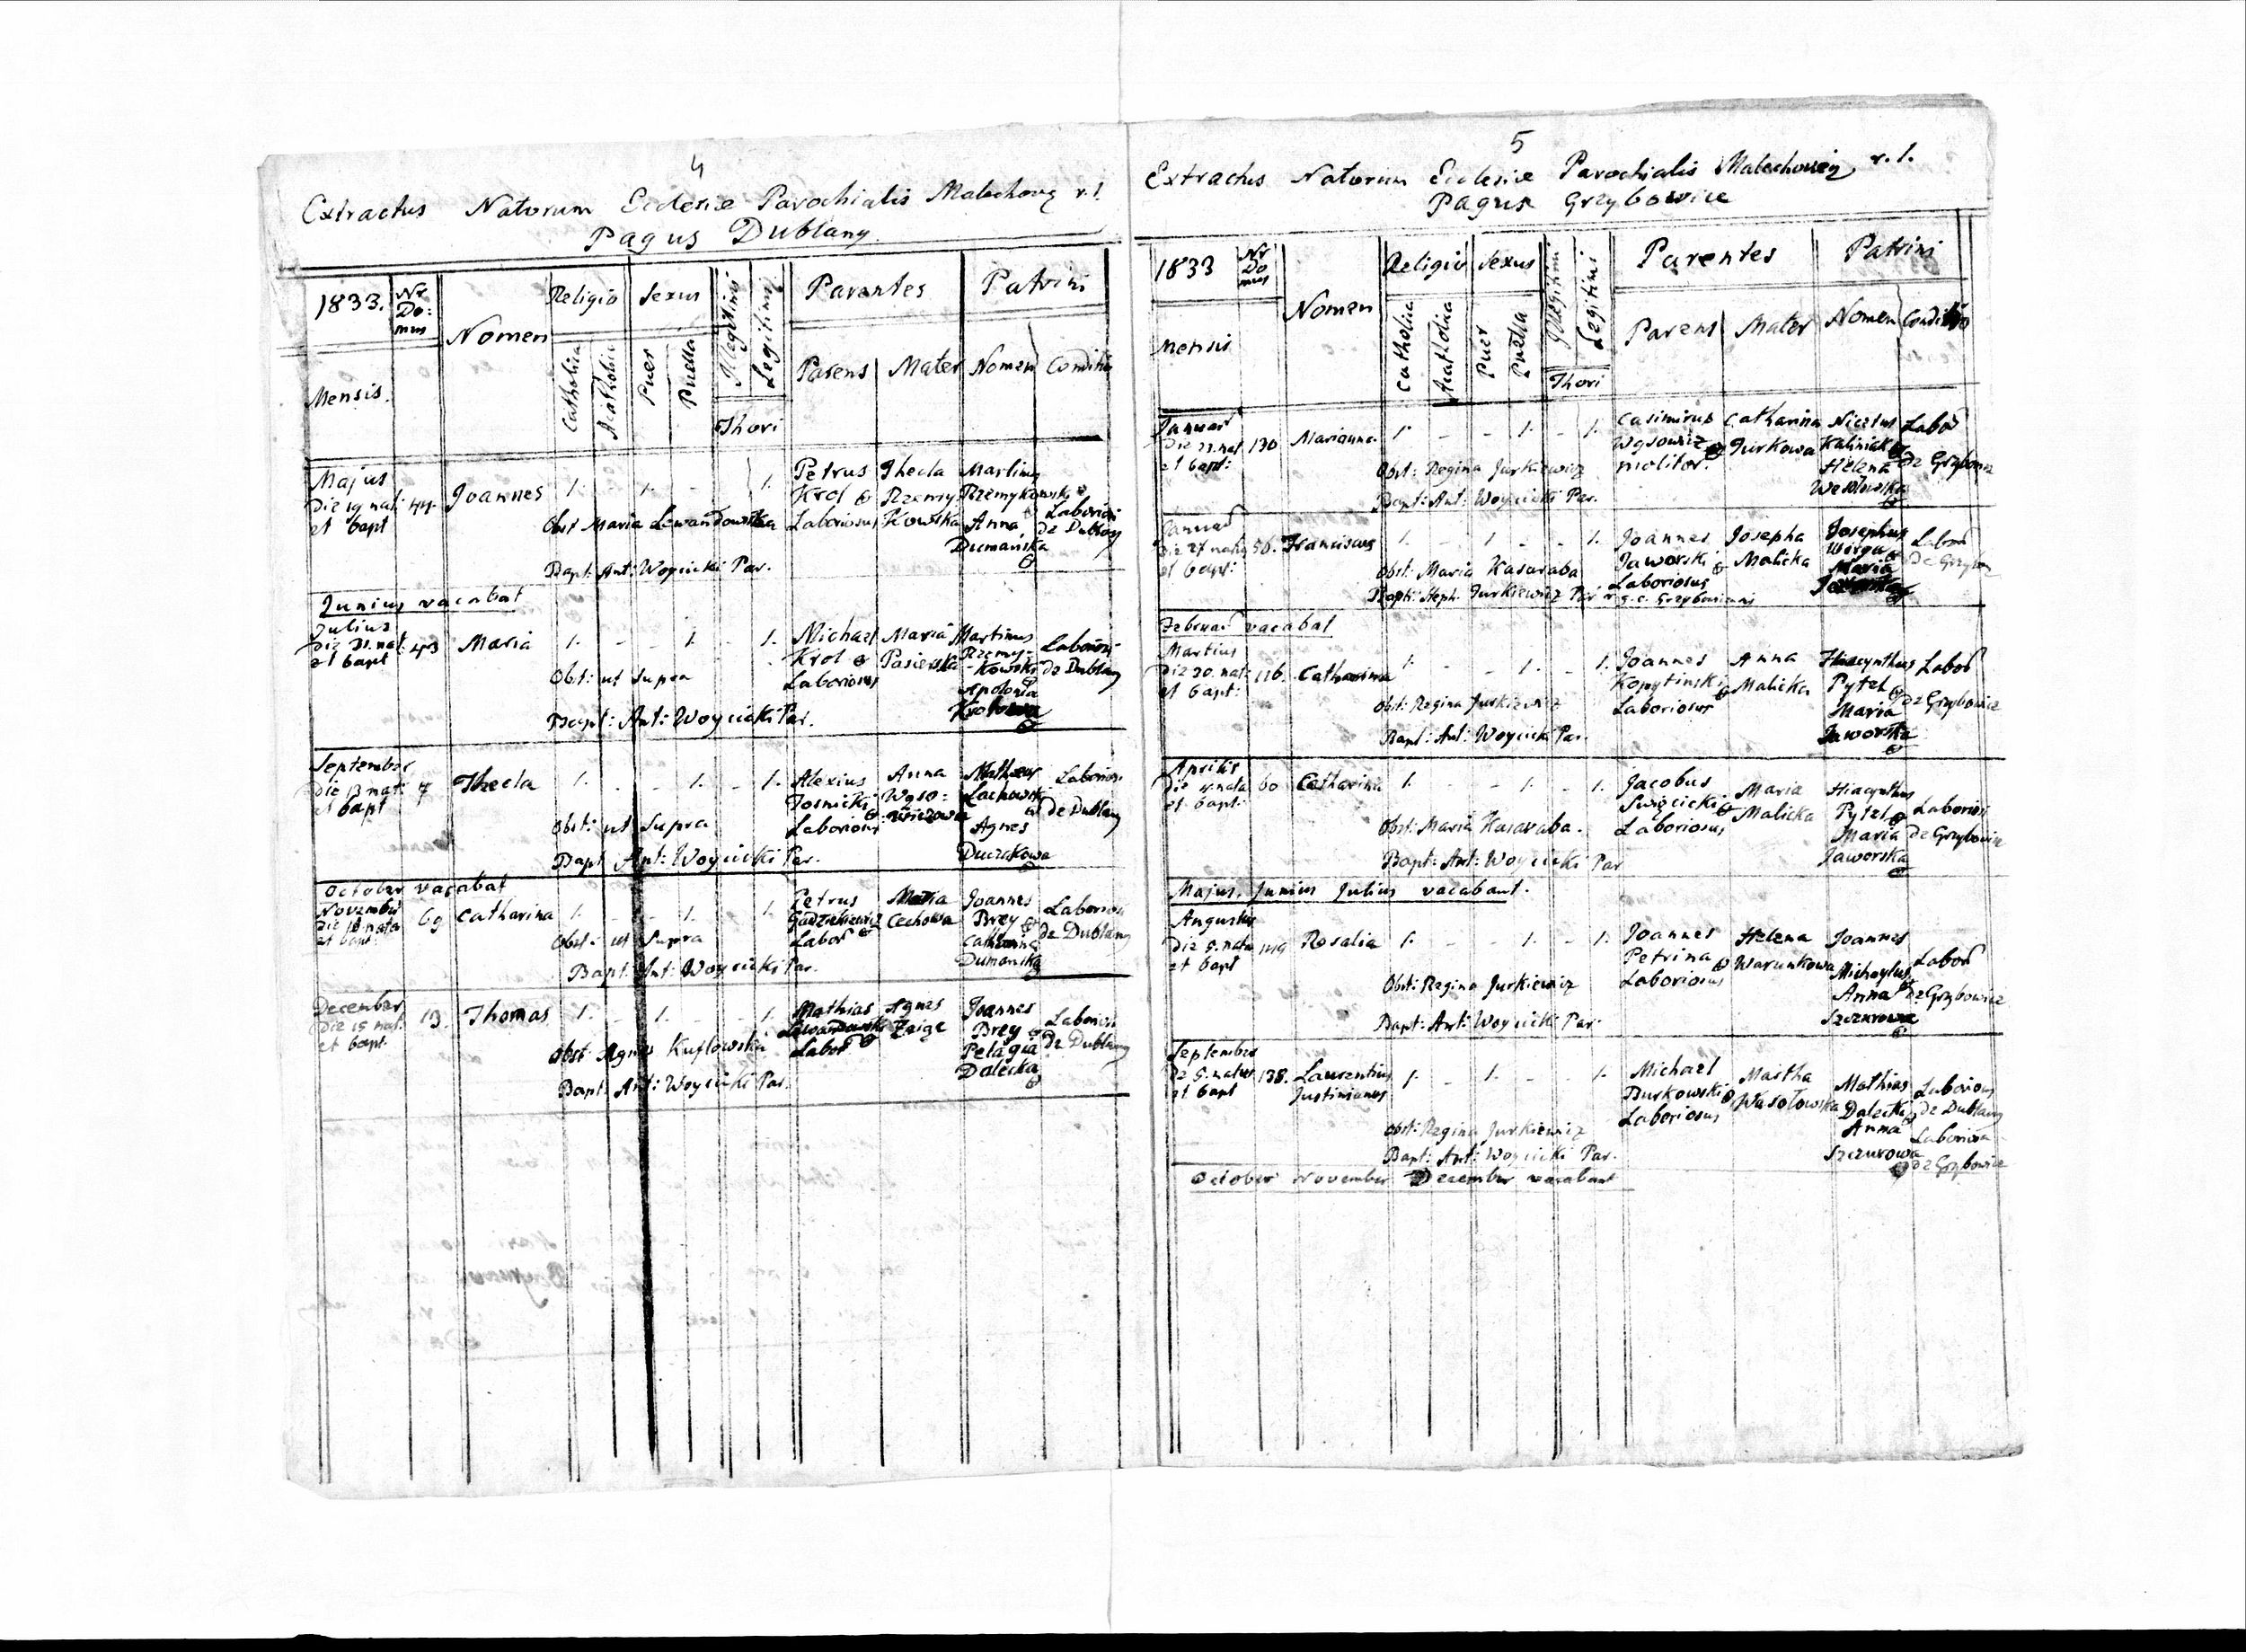 4
Extractus Natorum Ecclesiæ Parochialis Malechovę r. l.
Pagus Dublany.
1833. Nr Do: mus Nomen Religio Sexus Illegitimi Legitimi Parentes Patrini
Mensis. Catholica Acatholica Puer Puella Thori Parens Mater Nomen Conditio
Majus Petrus Thecla Martinus
die 19 nat: 44. Joannes 1. - 1. - - 1. Krol Rzemy Rzemykowski
et bapt Laboriosus Kowska Anna Laboriosi de Dublany
Obst Maria Lewandowska Dumańska
Bapt: Ant: Woycicki Par.
Junius vacabat
Julius
die 31. nat: 43 Maria 1. - - 1. - 1. Michael Maria Martinus Laboriosi
et bapt Krol Pasierska Rzemy-kowski de Dublany
Obst: ut Supra Laboriosus Apolonia
Bapt: Ant: Woycicki Par. Krolowa
September
die 13 nat: 7 Thecla 1. - - 1. - 1. Alexius Anna Matheus Laboriosi
et bapt Josnicki Wąso: Lachowski de Dublany
Obst: ut Supra Laboriosus wiczowa Agnes
Bapt Ant: Woycicki Par. Duczakowa
October vacabat
November 69 Catharina 1. - - 1. - 1. Petrus Maria Joannes Laboriosi
et bapt: Cechowa Brey de Dublany
Obst: ut Supra Labor Catharina
Bapt: Ant: Woycicki Par. Dumanska
December
die 15 nat: 13. Thomas 1. - 1. - - 1. Mathias Agnes Joannes Laboriosi
et bapt. Lewandowski Zaige Brey de Dublany
Obst Agnes Kuflowska Labor Pelagia
Bapt. Ant: Woycicki Par. Dalecka
5
Extractus Natorum Ecclesiæ Parochialis Malechovię r. l.
Pagus Grzybowice
1833 Nr Do mus Nomen Religio Sexus Illegitimi Legitimi Parentes Patrini
Mensis Catholica Acatholica Puer Puella Thori Parens Mater Nomen Conditio
Januar Casimirus Catharina Labor
130 Marianna 1. - - 1. - 1. Wąsowicz Jurkowa Kaliniak de Grzybowice
et bapt: molitor. Helena
Obst: Regina Jurkiewicz Wesołowska
Bapt: Ant: Woycicki Par.
Januar
die 27 natus 50. Franciscus 1. - 1. - - 1. Joannes Josepha Josephus Labor
et bapt: Jaworski Malicka Maria
Obst: Maria Kasaraba Laboriosus
Bapt: Steph. Jurkiewicz Par g. c. Grzybovianus
Februar vacabat
Martius
die 20. nata 116. Catharina 1. - - 1. - 1. Joannes Anna Hiacynthus Labor
et bapt: Kopytinski Malicka Pytel de Grzybowice
Obst: Regina Jurkiewicz Laboriosus Maria
Bapt: Ant: Woycicki Par. Jaworska
Aprilis
60 Catharina 1. - - 1. - 1. Jacobus Maria Hiacynthus Laboriosi
et bapt: Swięcicki Malicka Pytel de Grzybowice
Obst: Maria Kasaraba. Laboriosus Maria
Bapt: Ant: Woycicki Par Jaworska
Majus. Junius Julius vacabant.
Augustus
die 5. nata 149 Rosalia 1. - - 1. - 1. Joannes Helena Joannes Labor
et bapt Petrina Warunkowa Michaylus de Grzybowice
Obst: Regina Jurkiewicz Laboriosus Anna
Bapt: Ant: Woycicki Par. Szczurowa
September
die 5. natus 138. Laurentius 1. - 1. - - 1. Michael Martha Mathias Laboriosus
et bapt Justinianus Burkowski Wasołowska Dalecki de Dublany
Obst: Regina Jurkiewicz Laboriosus Anna Laboriosa
Bapt: Ant: Woycicki Par. Szczurowa de Grzybowice
October November December vacabant